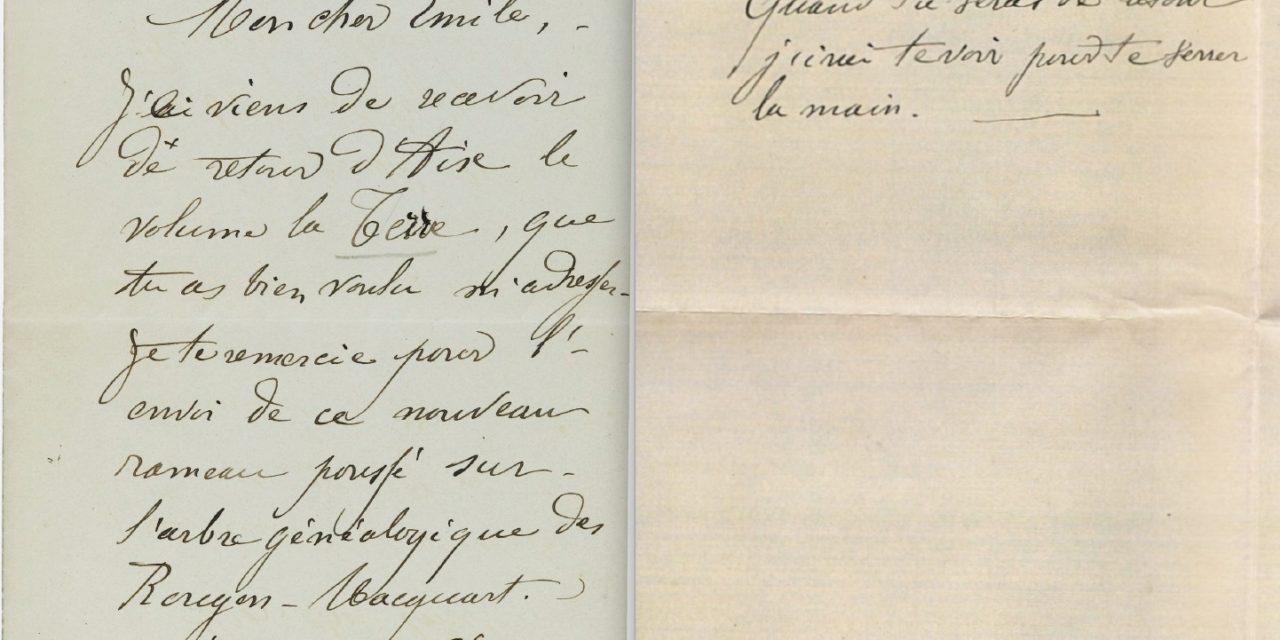 Mon cher Emile, -
J'ai viens de recevoir
de retour d'Aix le
volume la Terre, que
tu as bien voulu m'adresser.
Je te remercie pour l'-
envoi de ce nouveau
rameau poussé sur -
l'arbre généalogique des
Rougon-Macquart.
Quand tu seras de retour
j'irai te voir pour te serrer
la main.